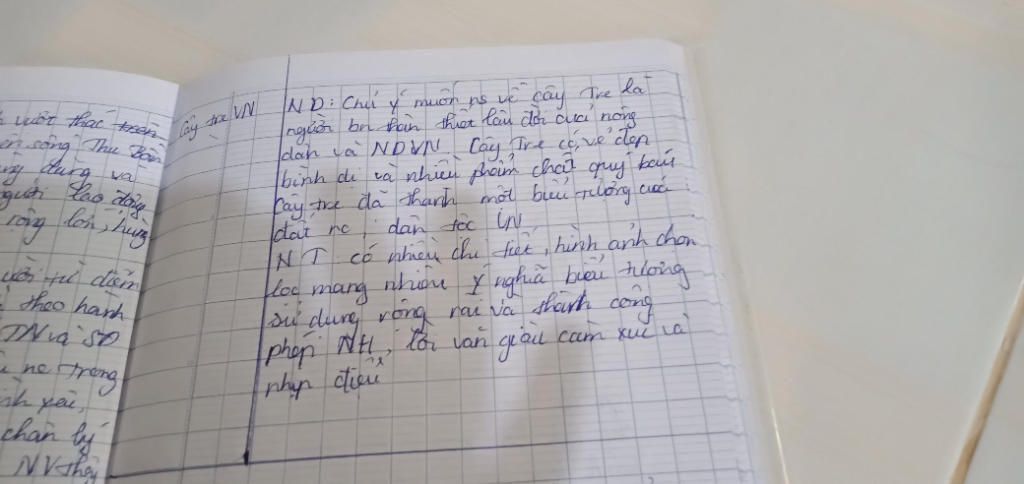 vượt thác trên
sông Thu Bồn
dựng và
người lao động
rộng lớn, hùng
từ điểm
theo hành
TN và SO
trong
yêu,
chân lý
NV thầy
Cây tre VN
ND: Chú ý muốn ns về cây Tre là
người bn thân thiết lâu đời của nông
dân và NDVN. Cây Tre có vẻ đẹp
bình dị và nhiều phẩm chất quý báu
Cây tre đã thành một biểu tượng của
đất nc, dân tộc VN
NT có nhiều chi tiết, hình ảnh chọn
lọc mang nhiều ý nghĩa biểu tượng
sử dụng rộng rãi và thành công
phép NH, lời văn giàu cảm xúc và
nhịp điệu